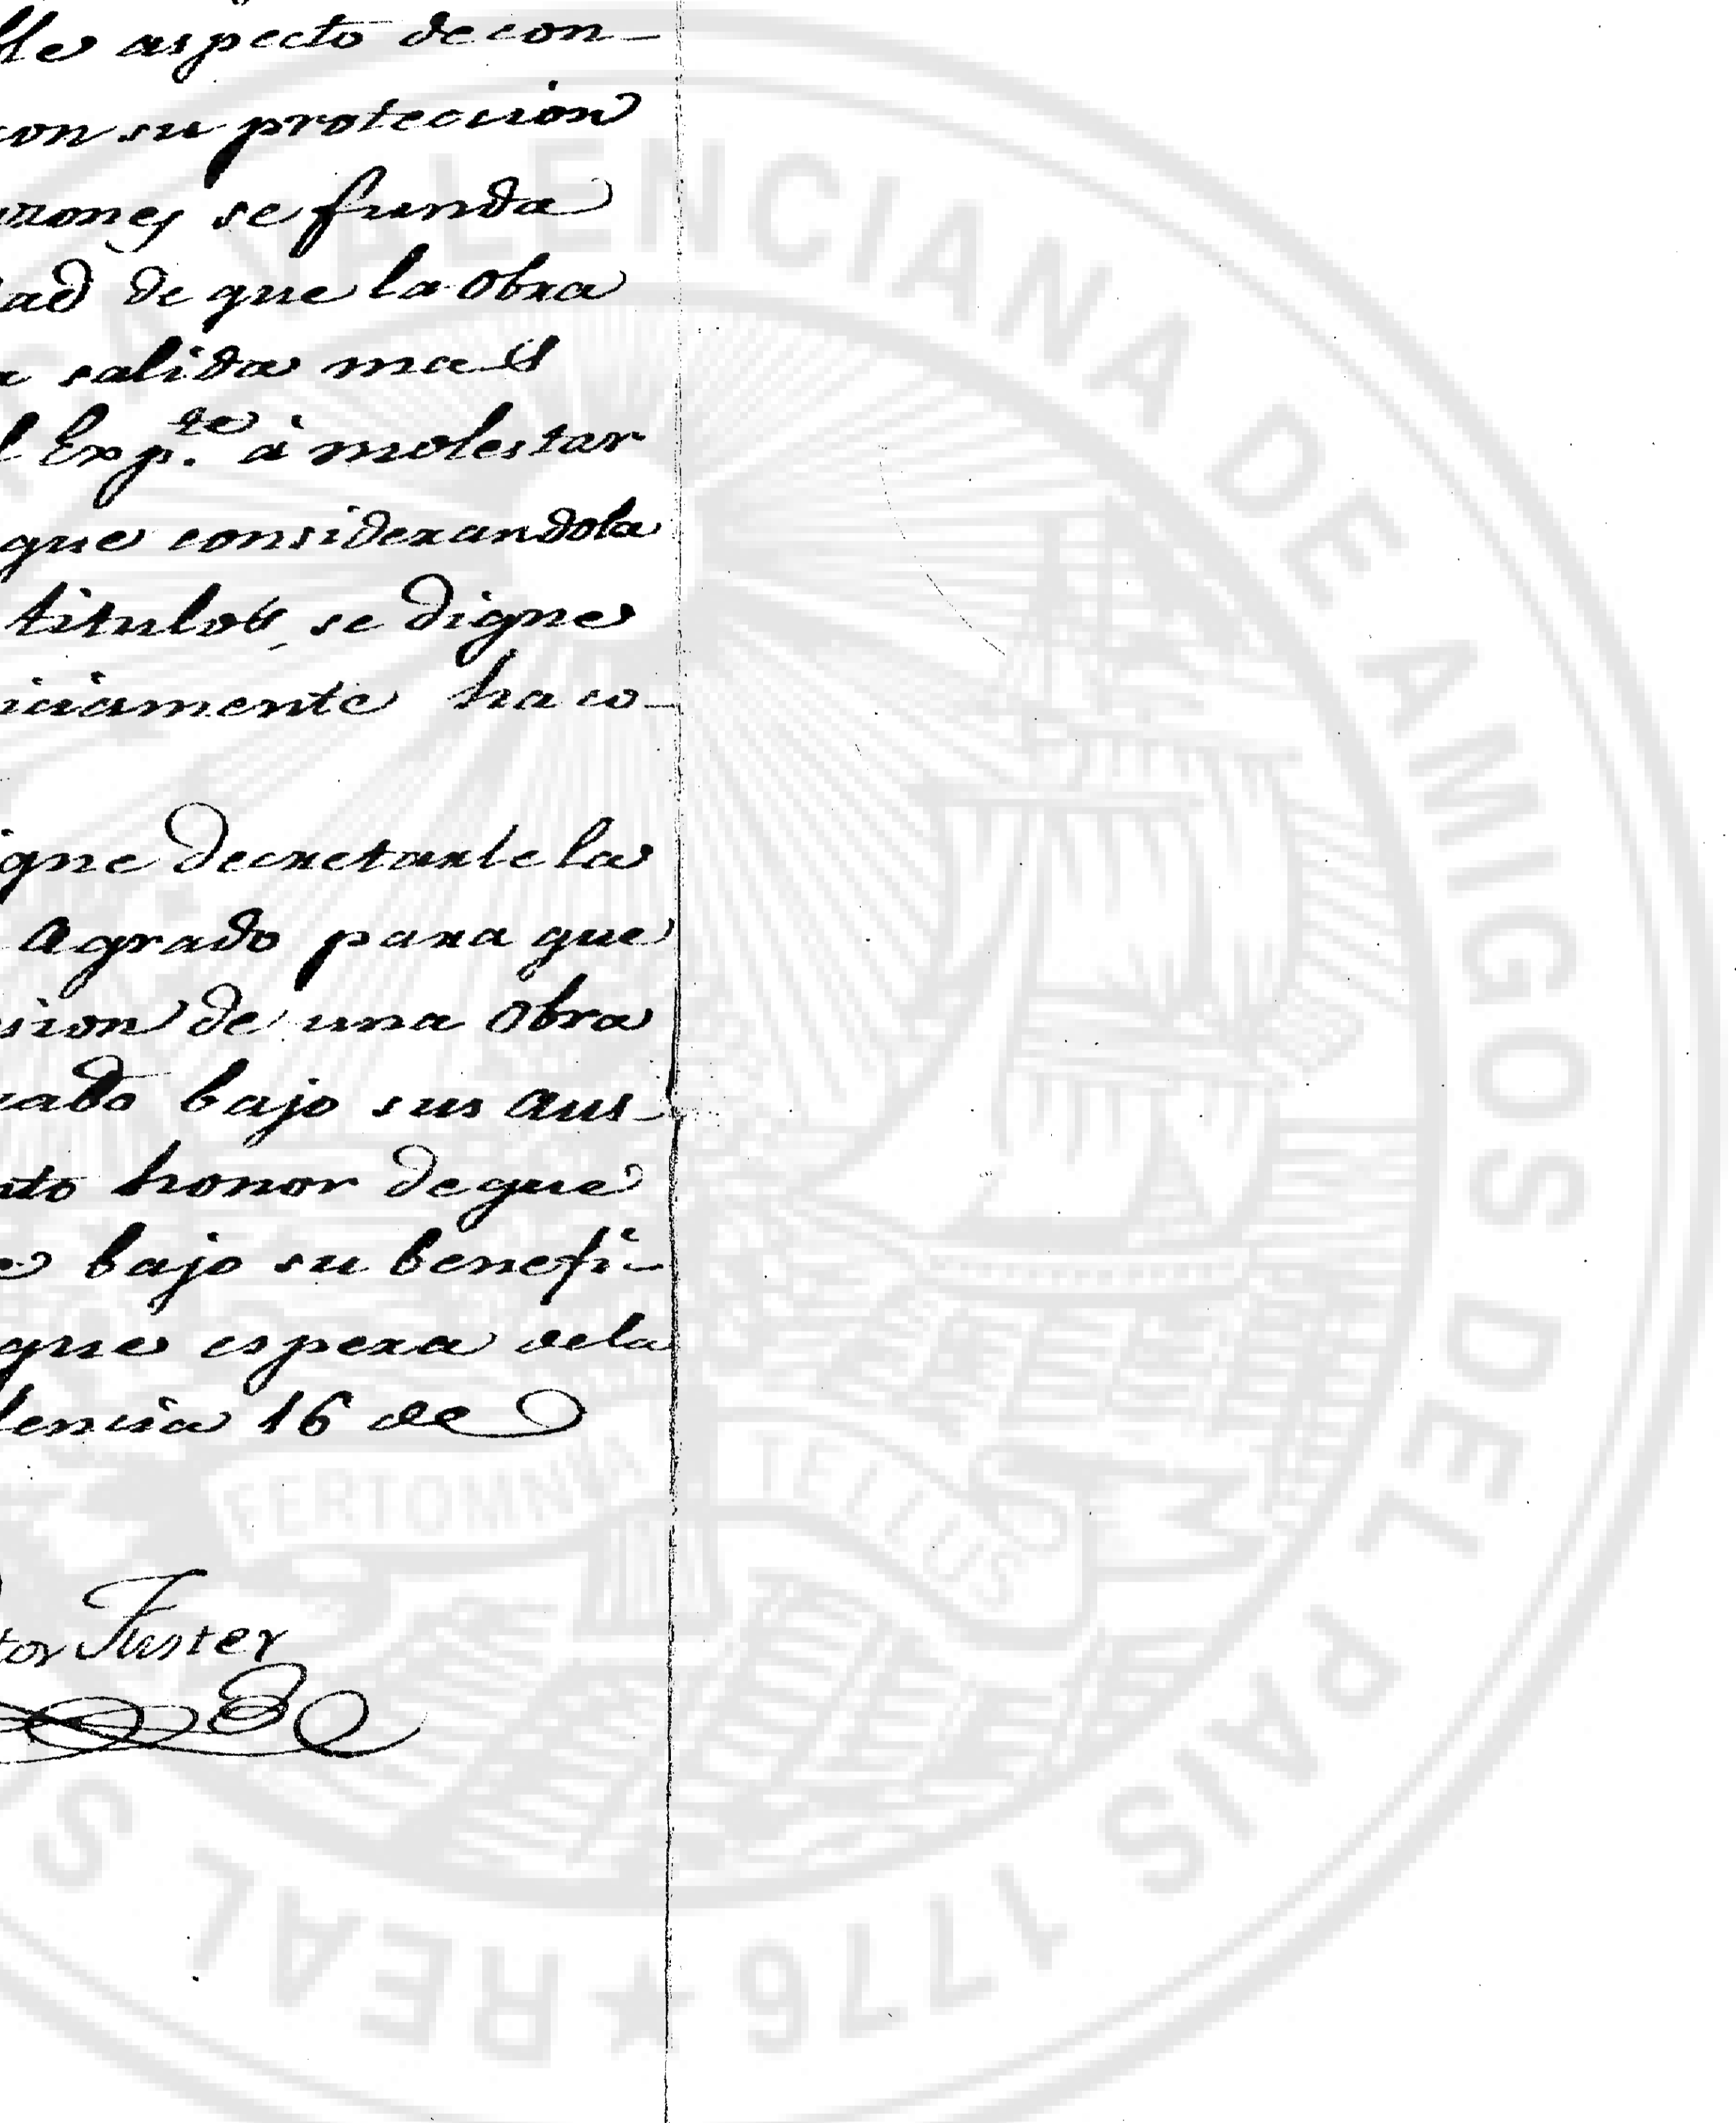 lle aspecto de con-
con su proteccion
zones se funda
dad de que la Obra
a salida mas
l Exp.te à molestar
que considerandola
titulos, se digne
iciamente ha co-
igne decretarle la
Agrado para que
sion de una Obra
cado bajo sus Aus-
nto honor de que
e bajo su benefi-
que espera de la
lencia 16 de
tor Fuster
REAL S
VALENCIANA DE AMIGOS DEL PAIS 1776
FERT OMNIA TELLUS